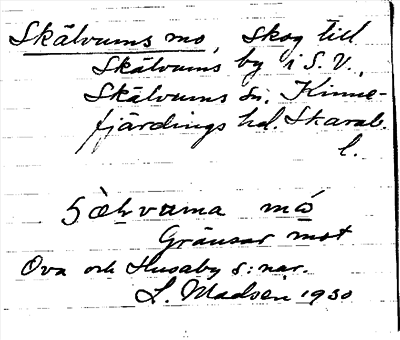 Skälvums mo, Skog till
Skälvums by i S.V.,
Skälvums sn. Kinne-
fjärdings hd. Skarab.
l.
må
Gränsar mot
Ova och Husaby s:nar.
L. Madsen 1930